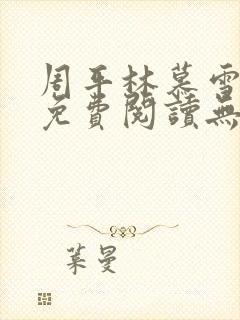 周平林慕雪
免費閱讀無
葉曼